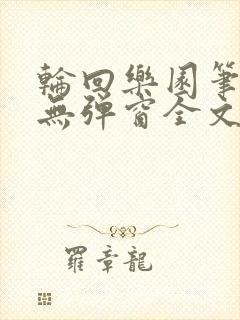 輪回樂園筆
無彈窗全文
羅章龍